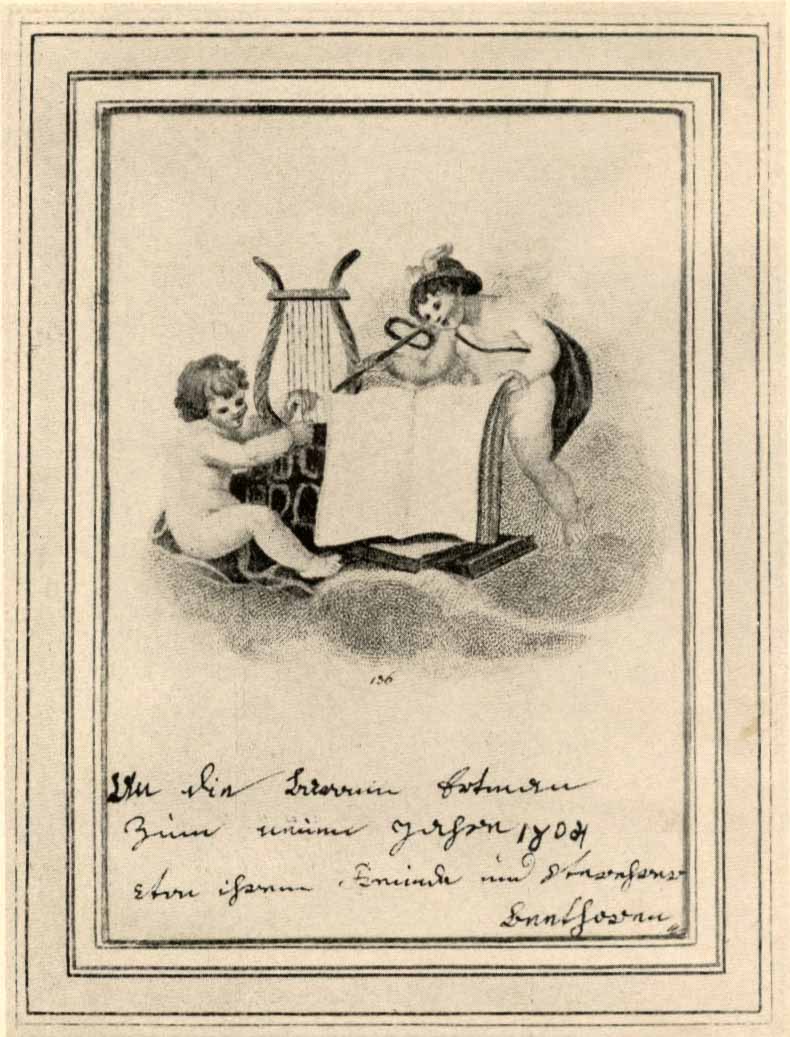 136
An die Baronin Ertman
Zum neuen Jahre 1804
von ihrem Freunde und Verehrer
Beethoven